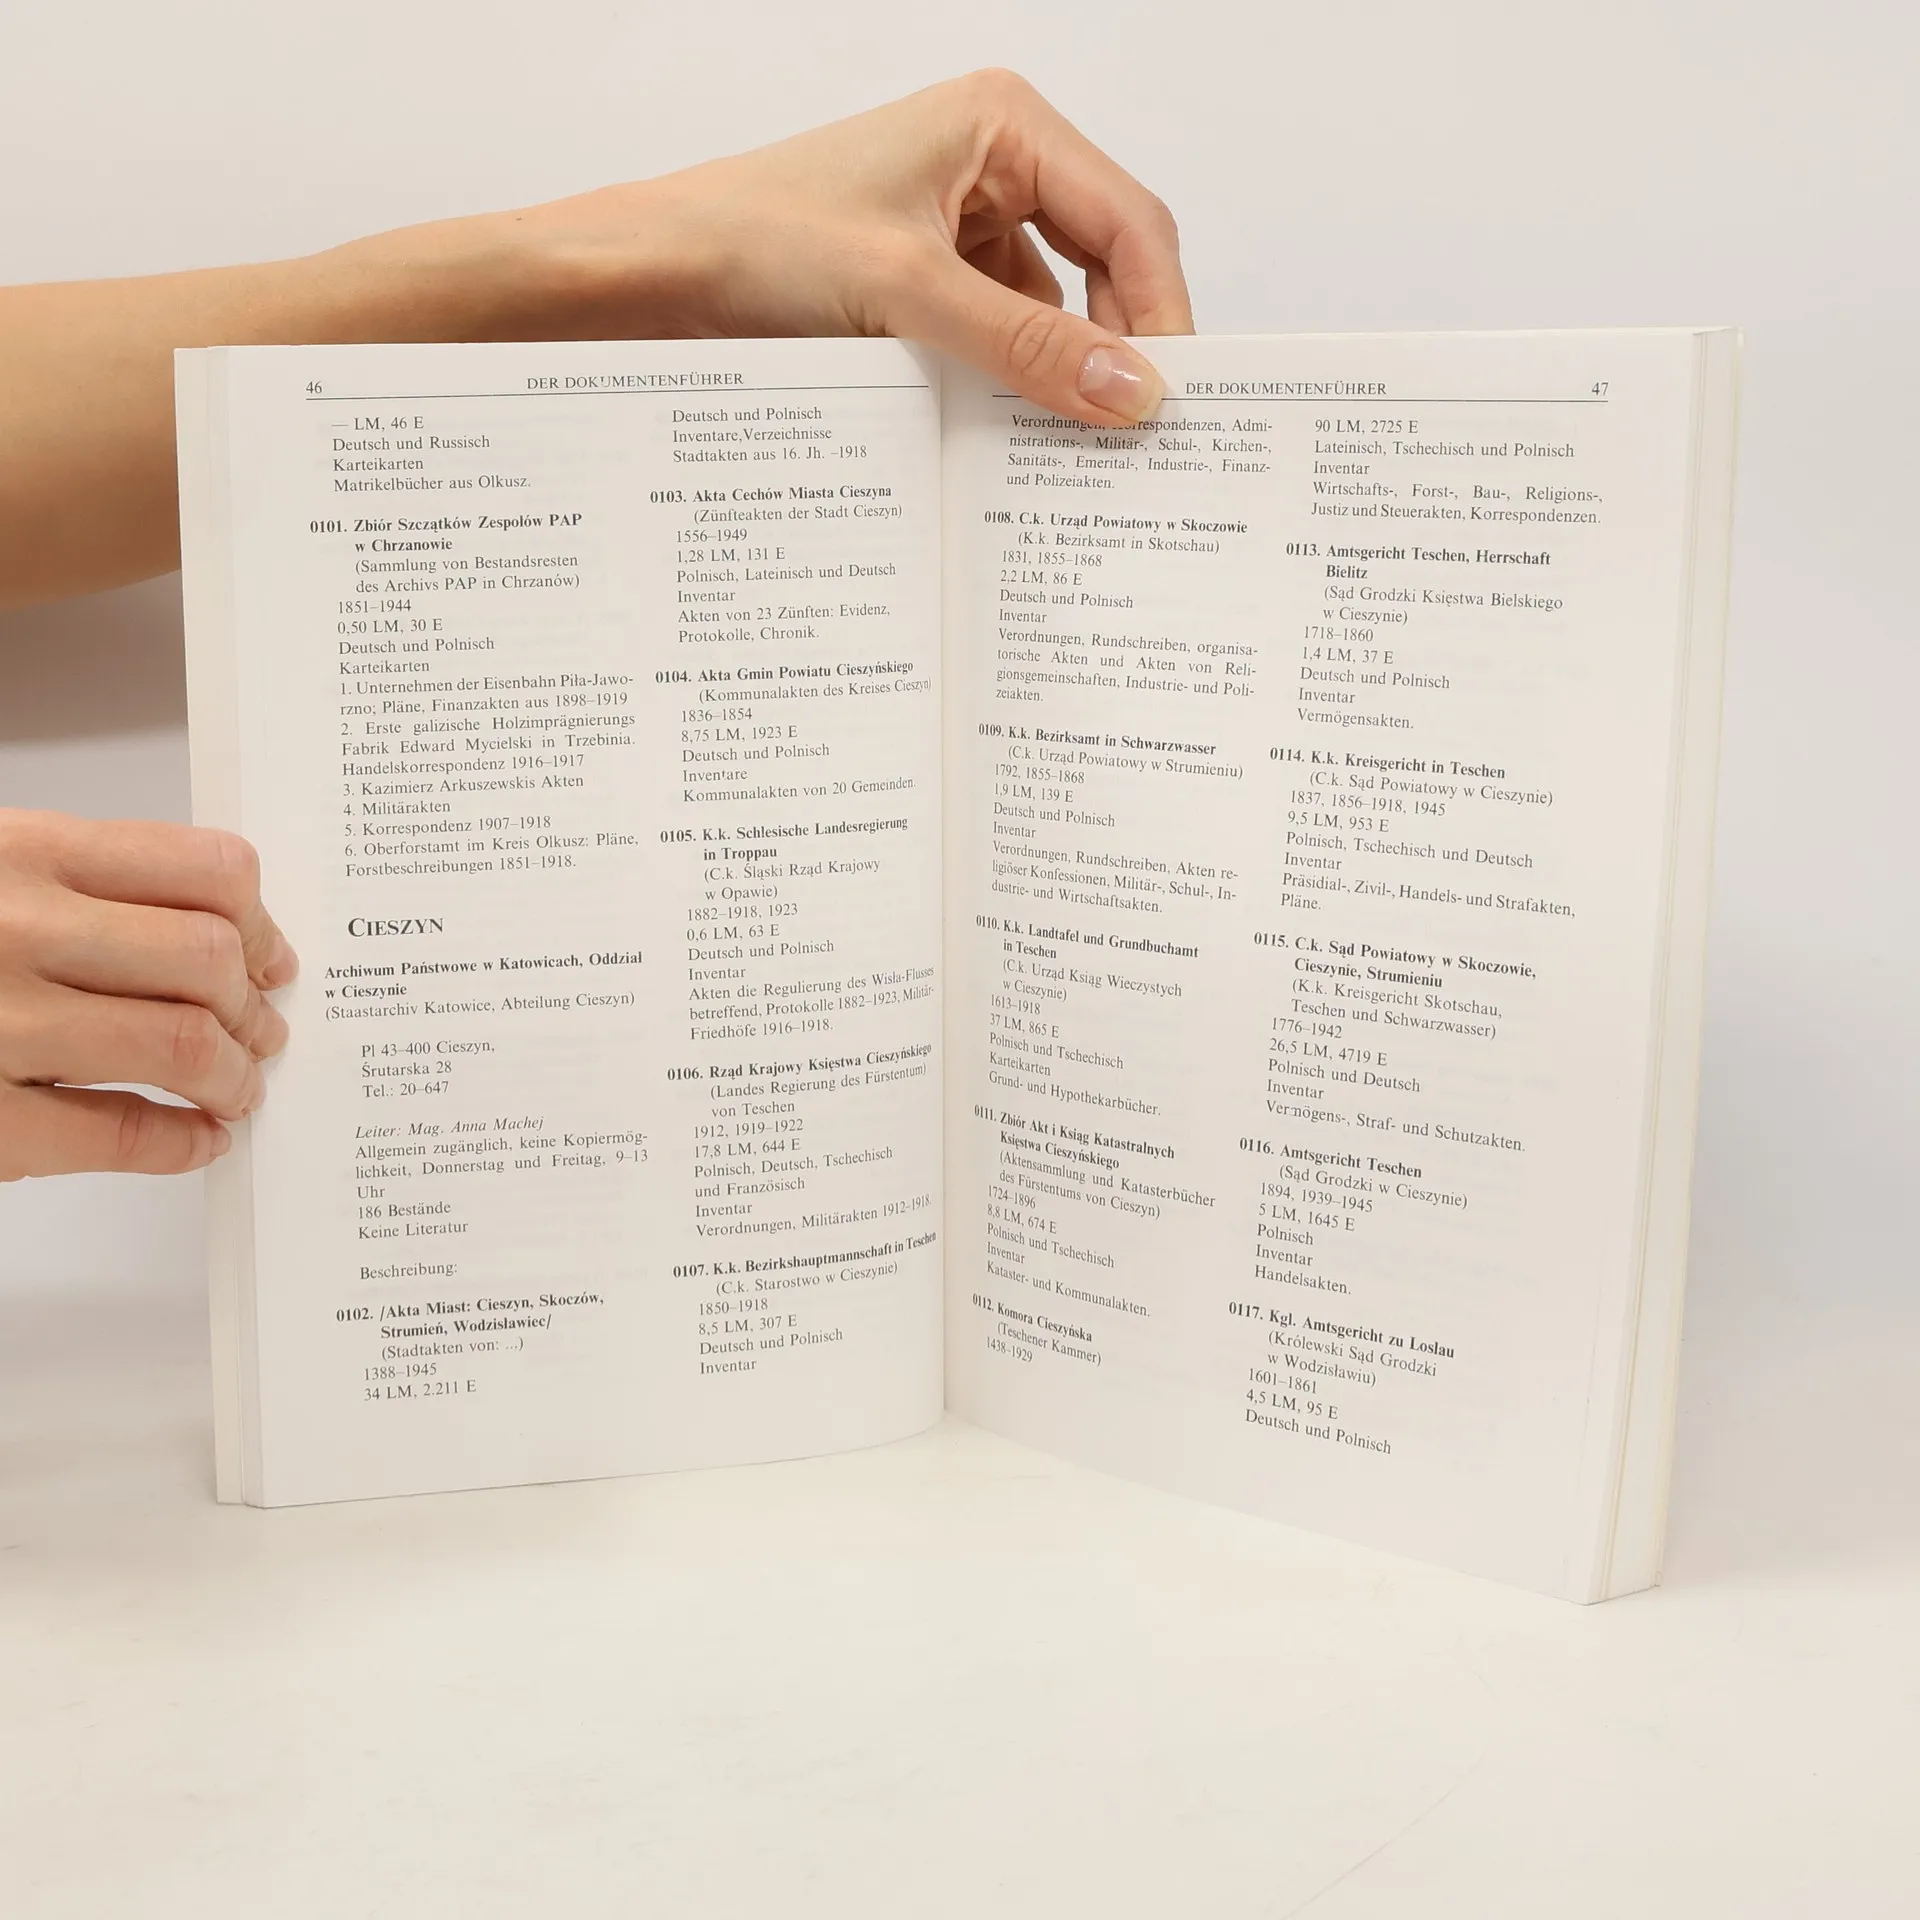 46
DER DOKUMENTENFÜHRER
— LM, 46 E
Deutsch und Russisch
Karteikarten
Matrikelbücher aus Olkusz.
0101. Zbiór Szczątków Zespołów PAP
w Chrzanowie
(Sammlung von Bestandsresten
des Archivs PAP in Chrzanów)
1851–1944
0,50 LM, 30 E
Deutsch und Polnisch
Karteikarten
1. Unternehmen der Eisenbahn Piła-Jawo-
rzno; Pläne, Finanzakten aus 1898–1919
2. Erste galizische Holzimprägnierungs
Fabrik Edward Mycielski in Trzebinia.
Handelskorrespondenz 1916–1917
3. Kazimierz Arkuszewskis Akten
4. Militärakten
5. Korrespondenz 1907–1918
6. Oberforstamt im Kreis Olkusz: Pläne,
Forstbeschreibungen 1851–1918.
CIESZYN
Archiwum Państwowe w Katowicach, Oddział
w Cieszynie
(Staastarchiv Katowice, Abteilung Cieszyn)
Pl 43–400 Cieszyn,
Śrutarska 28
Tel.: 20–647
Leiter: Mag. Anna Machej
Allgemein zugänglich, keine Kopiermög-
lichkeit, Donnerstag und Freitag, 9–13
Uhr
186 Bestände
Keine Literatur
Beschreibung:
0102. /Akta Miast: Cieszyn, Skoczów,
Strumień, Wodzisławiec/
(Stadtakten von: ...)
1388–1945
34 LM, 2.211 E
Deutsch und Polnisch
Inventare,Verzeichnisse
Stadtakten aus 16. Jh. –1918
0103. Akta Cechów Miasta Cieszyna
(Zünfteakten der Stadt Cieszyn)
1556–1949
1,28 LM, 131 E
Polnisch, Lateinisch und Deutsch
Inventar
Akten von 23 Zünften: Evidenz,
Protokolle, Chronik.
0104. Akta Gmin Powiatu Cieszyńskiego
(Kommunalakten des Kreises Cieszyn)
1836–1854
8,75 LM, 1923 E
Deutsch und Polnisch
Inventare
Kommunalakten von 20 Gemeinden.
0105. K.k. Schlesische Landesregierung
in Troppau
(C.k. Śląski Rząd Krajowy
w Opawie)
1882–1918, 1923
0,6 LM, 63 E
Deutsch und Polnisch
Inventar
Akten die Regulierung des Wisła-Flusses
betreffend, Protokolle 1882–1923, Militär-
Friedhöfe 1916–1918.
0106. Rząd Krajowy Księstwa Cieszyńskiego
(Landes Regierung des Fürstentum)
von Teschen
1912, 1919–1922
17,8 LM, 644 E
Polnisch, Deutsch, Tschechisch
und Französisch
Inventar
Verordnungen, Militärakten 1912–1918.
0107. K.k. Bezirkshauptmannschaft in Teschen
(C.k. Starostwo w Cieszynie)
1850–1918
8,5 LM, 307 E
Deutsch und Polnisch
Inventar
DER DOKUMENTENFÜHRER
47
Verordnungen, Korrespondenzen, Admi-
nistrations-, Militär-, Schul-, Kirchen-,
Sanitäts-, Emerital-, Industrie-, Finanz-
und Polizeiakten.
0108. C.k. Urząd Powiatowy w Skoczowie
(K.k. Bezirksamt in Skotschau)
1831, 1855–1868
2,2 LM, 86 E
Deutsch und Polnisch
Inventar
Verordnungen, Rundschreiben, organisa-
torische Akten und Akten von Reli-
gionsgemeinschaften, Industrie- und Poli-
zeiakten.
0109. K.k. Bezirksamt in Schwarzwasser
(C.k. Urząd Powiatowy w Strumieniu)
1792, 1855–1868
1,9 LM, 139 E
Deutsch und Polnisch
Inventar
Verordnungen, Rundschreiben, Akten re-
ligiöser Konfessionen, Militär-, Schul-, In-
dustrie- und Wirtschaftsakten.
0110. K.k. Landtafel und Grundbuchamt
in Teschen
(C.k. Urząd Ksiąg Wieczystych
w Cieszynie)
1613–1918
37 LM, 865 E
Polnisch und Tschechisch
Karteikarten
Grund- und Hypothekarbücher.
0111. Zbiór Akt i Ksiąg Katastralnych
Księstwa Cieszyńskiego
(Aktensammlung und Katasterbücher
des Fürstentums von Cieszyn)
1724–1896
8,8 LM, 674 E
Polnisch und Tschechisch
Inventar
Kataster- und Kommunalakten.
0112. Komora Cieszyńska
(Teschener Kammer)
1438–1929
90 LM, 2725 E
Lateinisch, Tschechisch und Polnisch
Inventar
Wirtschafts-, Forst-, Bau-, Religions-,
Justiz und Steuerakten, Korrespondenzen.
0113. Amtsgericht Teschen, Herrschaft
Bielitz
(Sąd Grodzki Księstwa Bielskiego
w Cieszynie)
1718–1860
1,4 LM, 37 E
Deutsch und Polnisch
Inventar
Vermögensakten.
0114. K.k. Kreisgericht in Teschen
(C.k. Sąd Powiatowy w Cieszynie)
1837, 1856–1918, 1945
9,5 LM, 953 E
Polnisch, Tschechisch und Deutsch
Inventar
Präsidial-, Zivil-, Handels- und Strafakten,
Pläne.
0115. C.k. Sąd Powiatowy w Skoczowie,
Cieszynie, Strumieniu
(K.k. Kreisgericht Skotschau,
Teschen und Schwarzwasser)
1776–1942
26,5 LM, 4719 E
Polnisch und Deutsch
Inventar
Vermögens-, Straf- und Schutzakten.
0116. Amtsgericht Teschen
(Sąd Grodzki w Cieszynie)
1894, 1939–1945
5 LM, 1645 E
Polnisch
Inventar
Handelsakten.
0117. Kgl. Amtsgericht zu Loslau
(Królewski Sąd Grodzki
w Wodzisławiu)
1601–1861
4,5 LM, 95 E
Deutsch und Polnisch